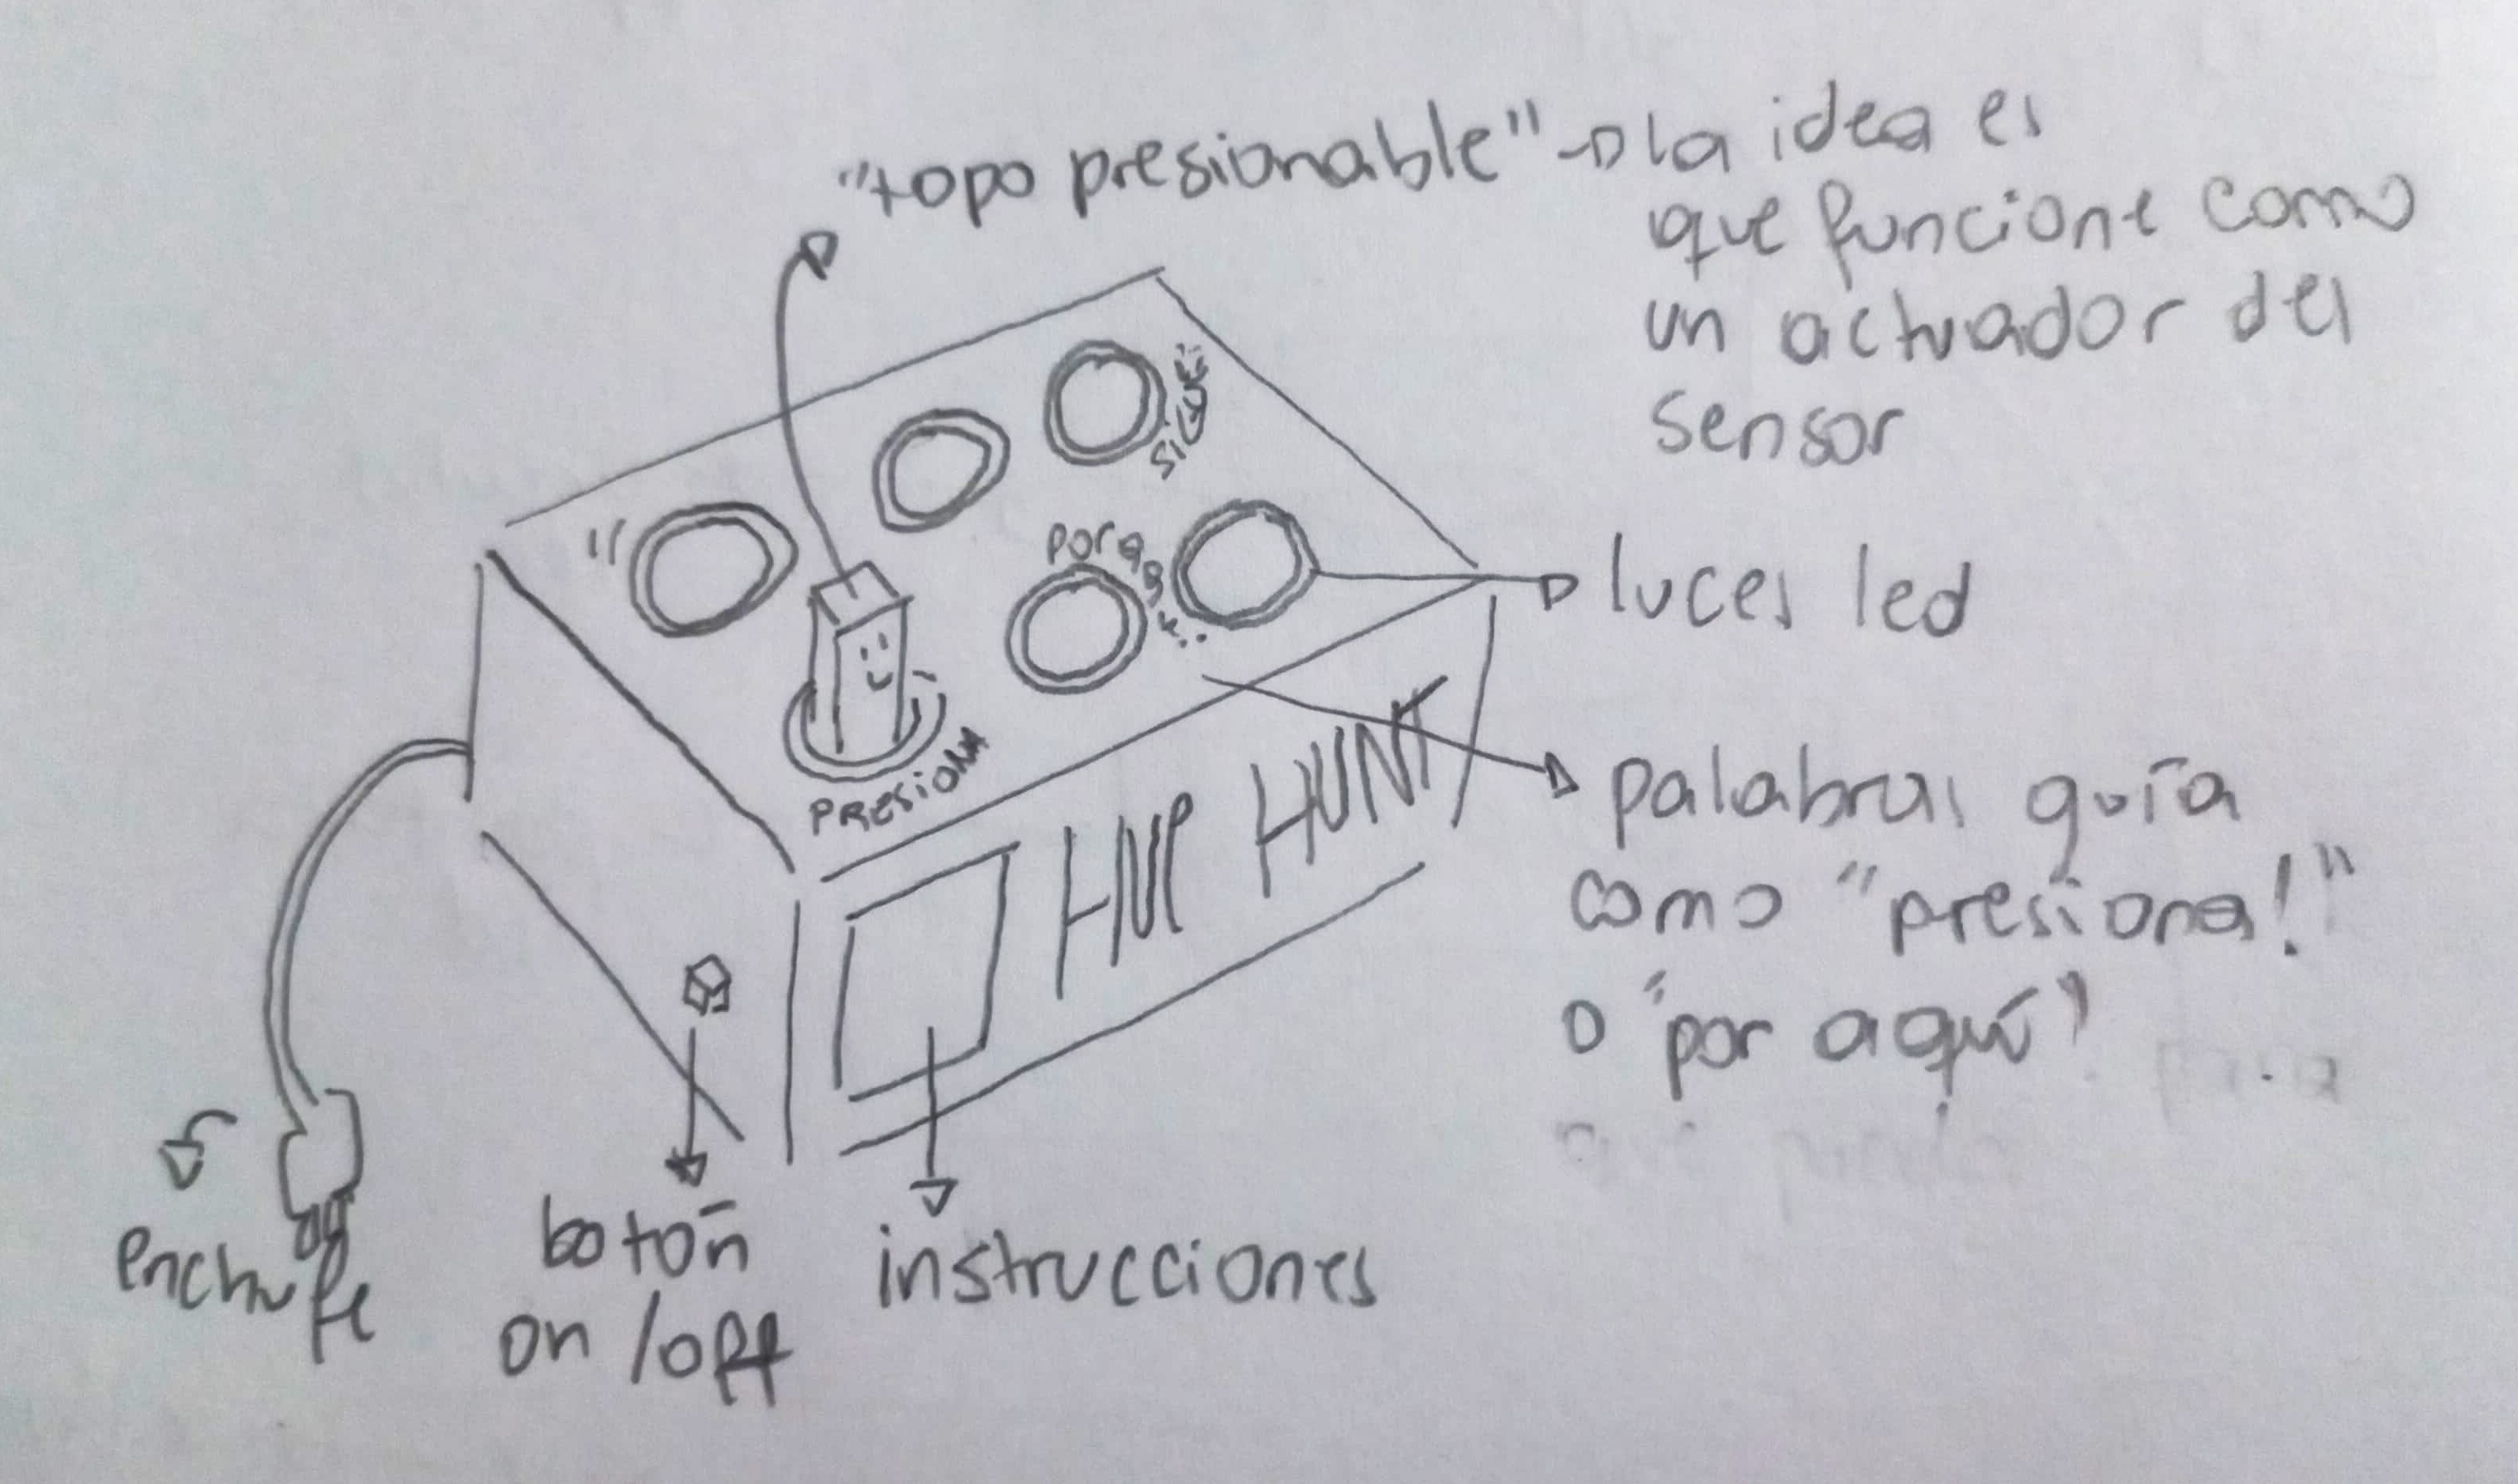 "topo presionable" → la idea es
que funcione como
un actuador del
sensor
SIGUE!
POR AQ
PRESIONA
luces led
palabras guía
como "presiona!"
o "por aquí"
HUNT
enchufe
botón
on/off
instrucciones